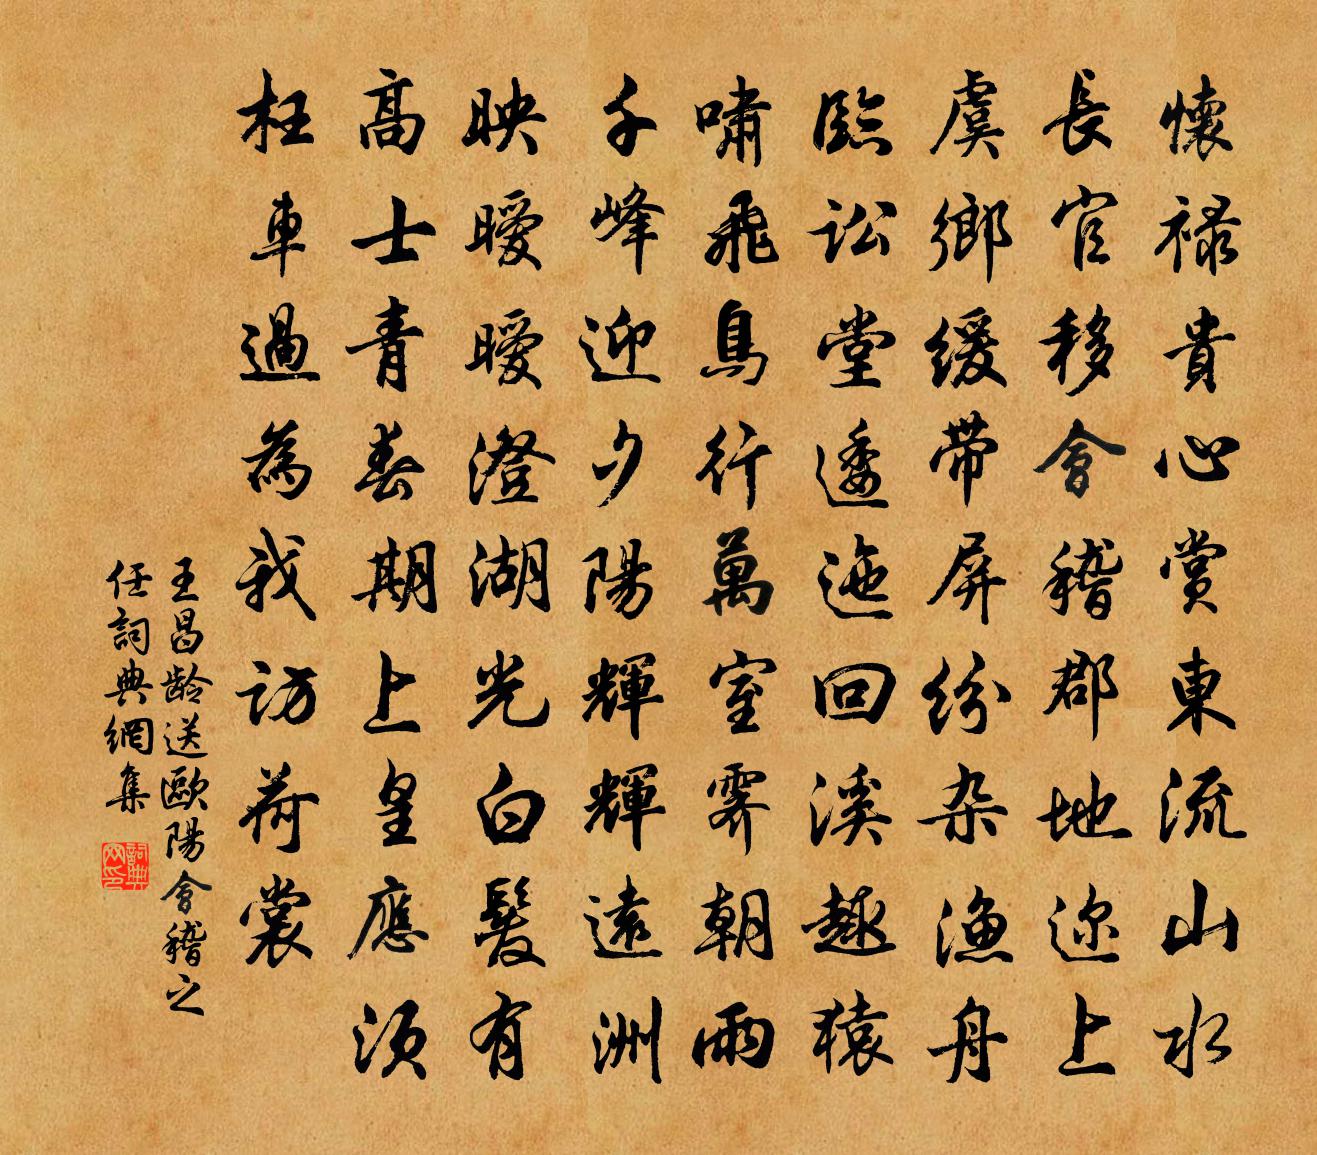 懷禄貴心賞東流山水
長官移會稽郡地迩上
虞鄉缓带屏紛杂渔舟
臨訟堂逶迤回溪趣猿
嘯飛鳥行萬室霽朝雨
千峰迎夕陽輝輝遠洲
映曖曖澄湖光白髮有
高士青春期上皇應须
枉車過為我访荷裳
王昌龄送歐陽會稽之
任詞典網集
詞典网印